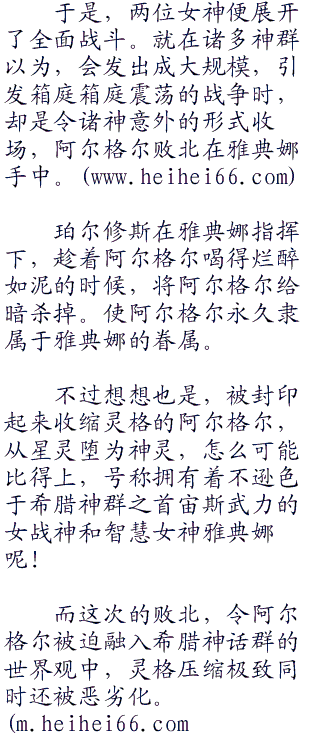 于是，两位女神便展开
了全面战斗。就在诸多神群
以为，会发出成大规模，引
发箱庭箱庭震荡的战争时，
却是令诸神意外的形式收
场，阿尔格尔败北在雅典娜
手中。(www.heihei66.com)
珀尔修斯在雅典娜指挥
下，趁着阿尔格尔喝得烂醉
如泥的时候，将阿尔格尔给
暗杀掉。使阿尔格尔永久隶
属于雅典娜的眷属。
不过想想也是，被封印
起来收缩灵格的阿尔格尔，
从星灵堕为神灵，怎么可能
比得上，号称拥有着不逊色
于希腊神群之首宙斯武力的
女战神和智慧女神雅典娜
呢！
而这次的败北，令阿尔
格尔被迫融入希腊神话群的
世界观中，灵格压缩极致同
时还被恶劣化。
(m.heihei66.com